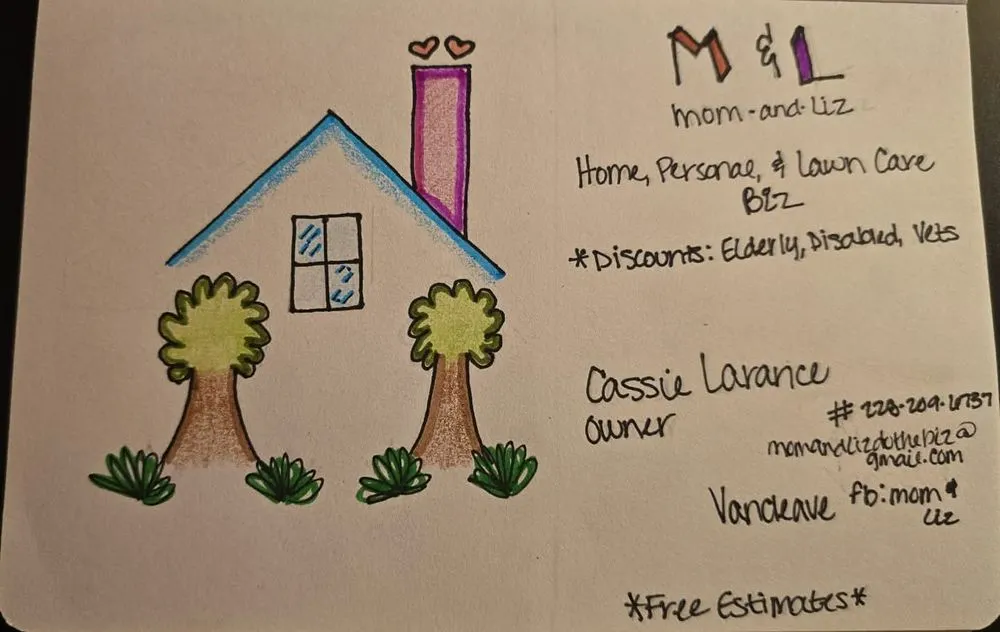 M & L
mom-and-Liz
Home, Personal, & Lawn Care
Biz
*Discounts: Elderly, Disabled, Vets
Cassie Larance
owner
# 228-209-6737
momandlizdothebiz@
gmail.com
Vancleave
fb: mom &
Liz
*Free Estimates*